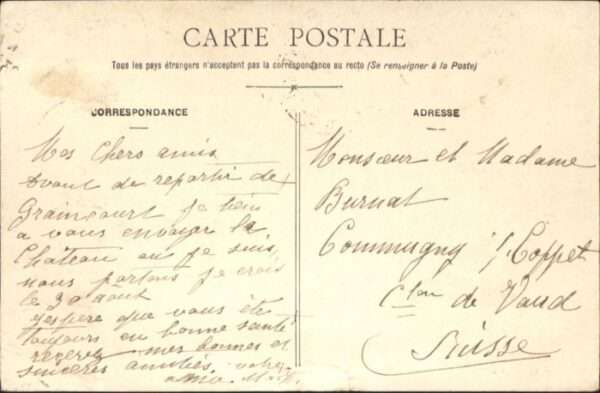 CARTE POSTALE
Tous les pays étrangers n'acceptent pas la correspondance au recto (Se renseigner à la Poste)
CORRESPONDANCE
Mes Chers amis
Avant de repartir de
Graincourt je tien
a vous envoyer le
Château ou je suis,
nous partons je crois
le 30 aout
J'espere que vous ête
toujours en bonne santé
recevez mes bonnes et
sincères amitiés. votre
ADRESSE
Monsieur et Madame
Burnat
Commugny s/Coppet
Cton de Vaud
Suisse